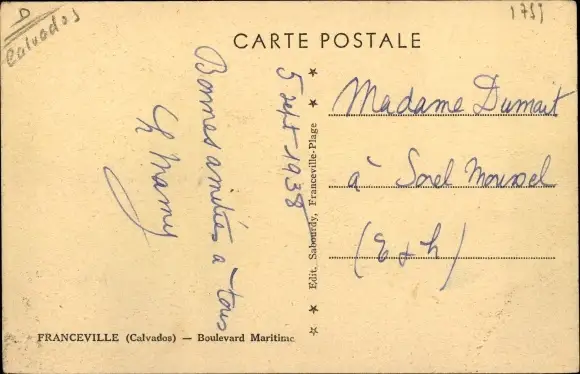 D
Calvados
1759
CARTE POSTALE
5 sept 1938
Bonnes amitiés à tous
Ch Mamy
Madame Dumait
à Sorel Moussel
(E & L)
Edit. Sabourdy, Franceville-Plage
FRANCEVILLE (Calvados) — Boulevard Maritime